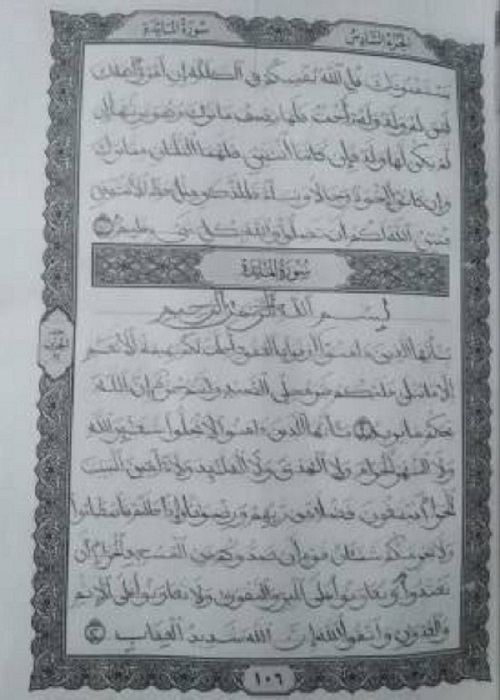 الجزء السادس
سورة المائدة
يستفتونك قل الله يفتيكم في الكلالة إن امرؤا هلك
ليس له ولد وله أخت فلها نصف ما ترك وهو يرثها إن
لم يكن لها ولد فإن كانتا اثنتين فلهما الثلثان مما ترك
وإن كانوا إخوة رجالا ونساء فللذكر مثل حظ الأنثيين
يبين الله لكم أن تضلوا والله بكل شيء عليم
سورة المائدة
بسم الله الرحمن الرحيم
يأيها الذين ءامنوا أوفوا بالعقود أحلت لكم بهيمة الأنعم
إلا ما يتلى عليكم غير محلي الصيد وأنتم حرم إن الله
يحكم ما يريد ١ يأيها الذين ءامنوا لا تحلوا شعئر الله
ولا الشهر الحرام ولا الهدي ولا القلئد ولا ءامين البيت
الحرام يبتغون فضلا من ربهم ورضونا وإذا حللتم فاصطادوا
ولا يجرمنكم شنئان قوم أن صدوكم عن المسجد الحرام أن
تعتدوا وتعاونوا على البر والتقوى ولا تعاونوا على الإثم
والعدون واتقوا الله إن الله شديد العقاب ٢
١٠٦